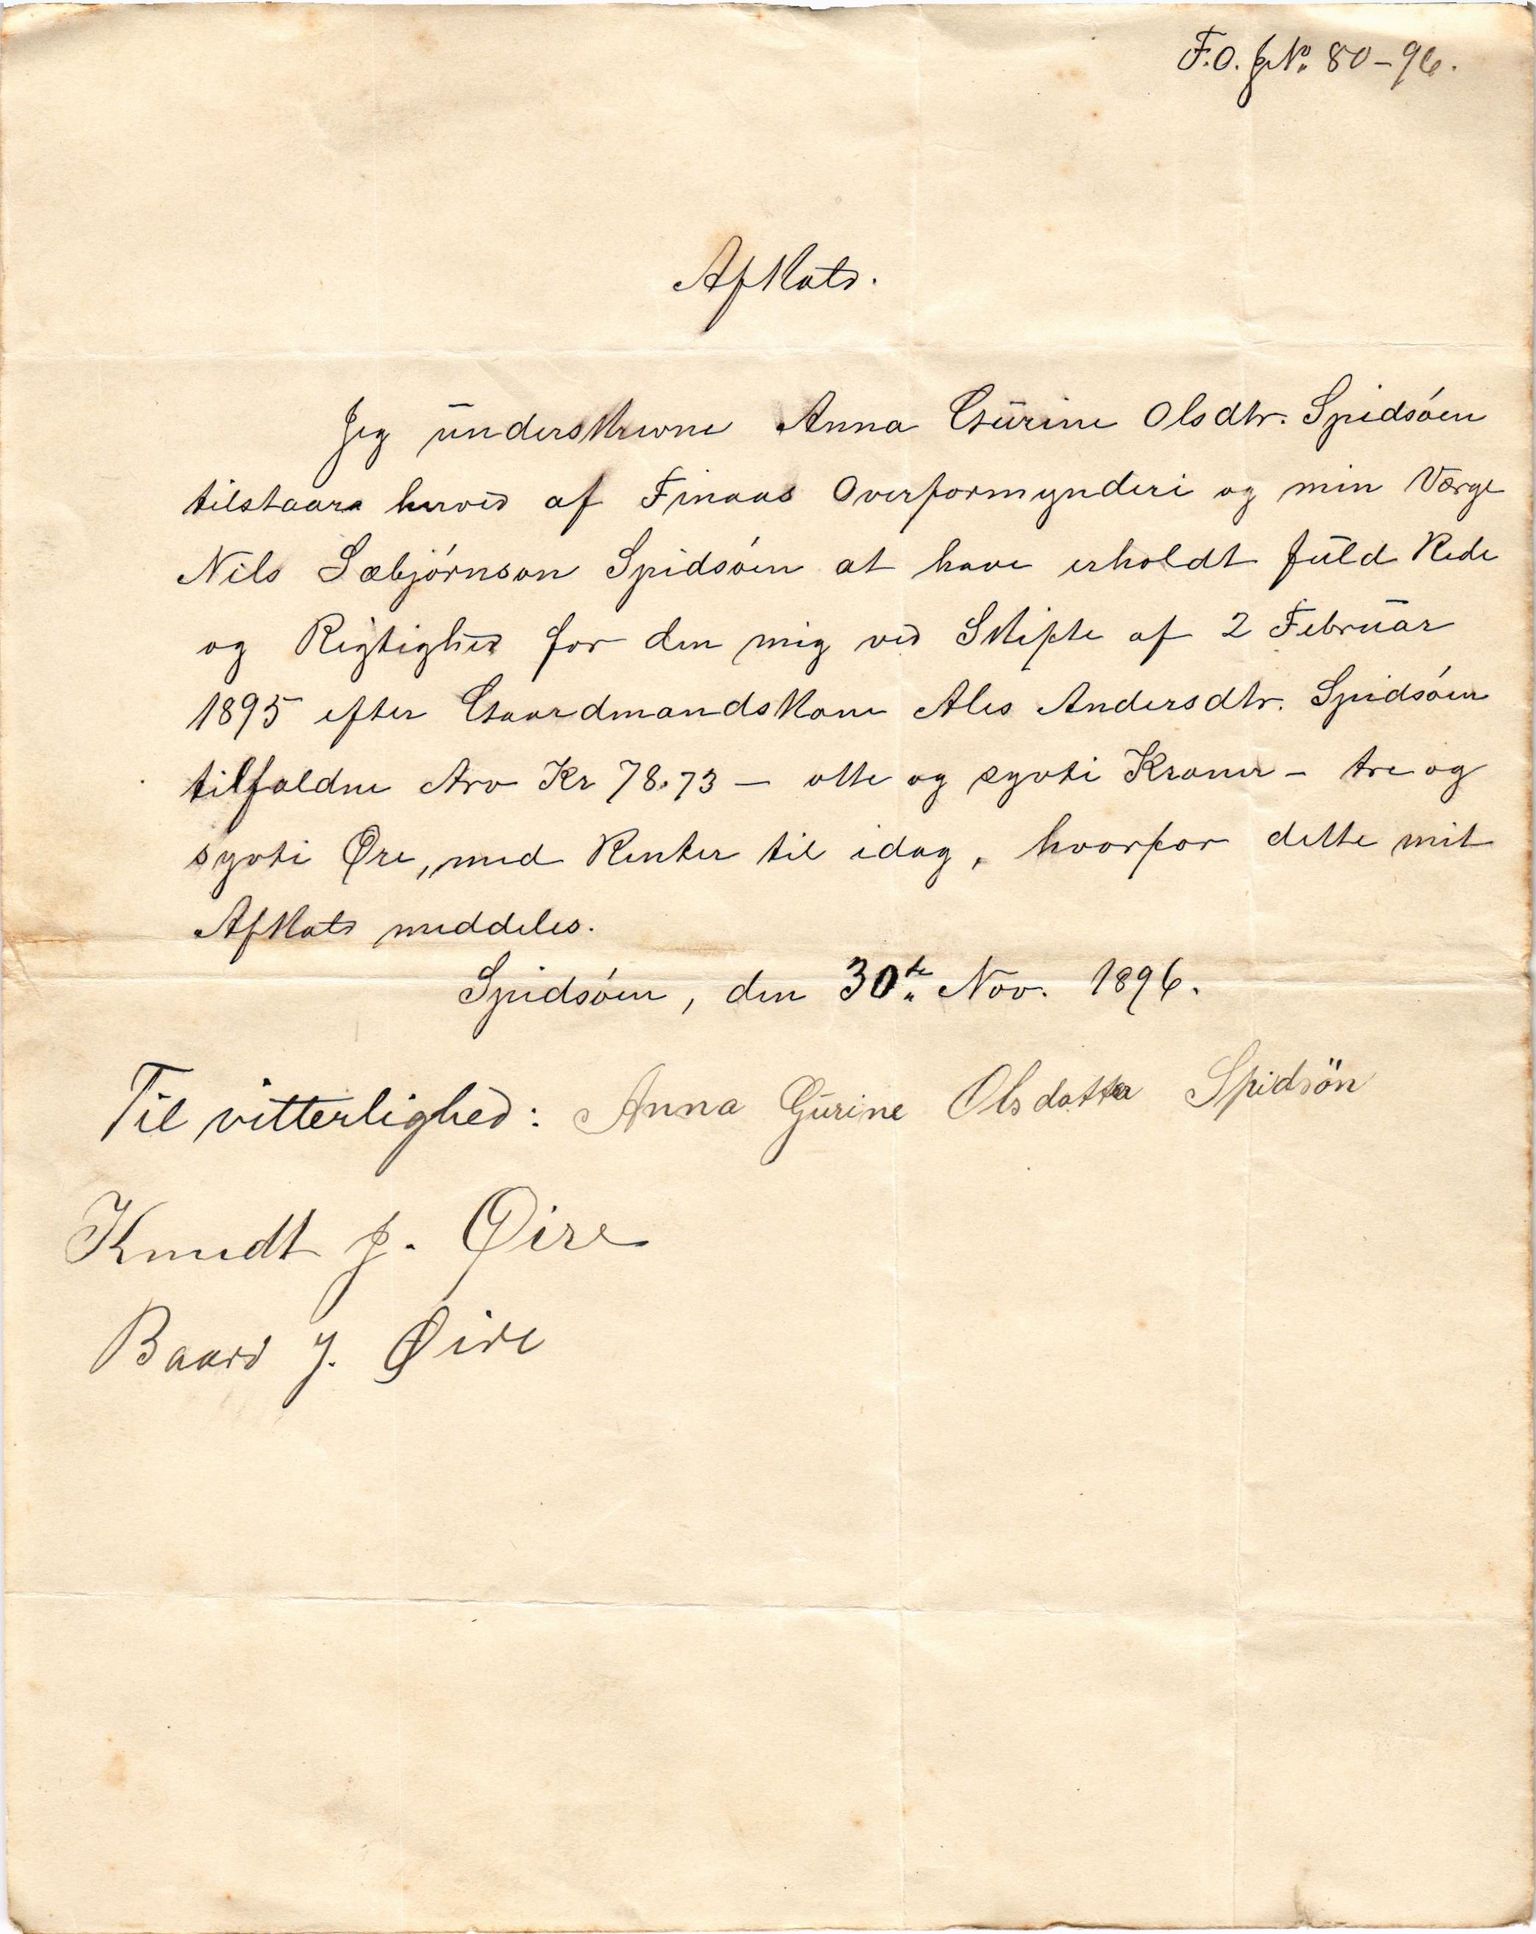 F.O. J№. 80-96.
Afkald.
Jeg underskrevne Anna Gurine Olsdtr. Spidsøen
tilstaar herved af Finaas Overformynderi og min Værge
Nils Sæbjørnson Spidsøen at have erholdt fuld Rede
og Rigtighed for den mig ved Skifte af 2 Februar
1895 efter Gaardmandskone Ales Andersdtr. Spidsøen
tilfaldne Arv Kr 78.73 — otte og sytti Kroner - tre og
sytti Øre, med Renter til idag, hvorfor dette mit
Afkald meddeles.
Spidsøen, den 30te Nov. 1896.
Til vitterlighed: Anna Gurine Olsdatter Spidsön
Knudt J. Øire
Baard J. Øire